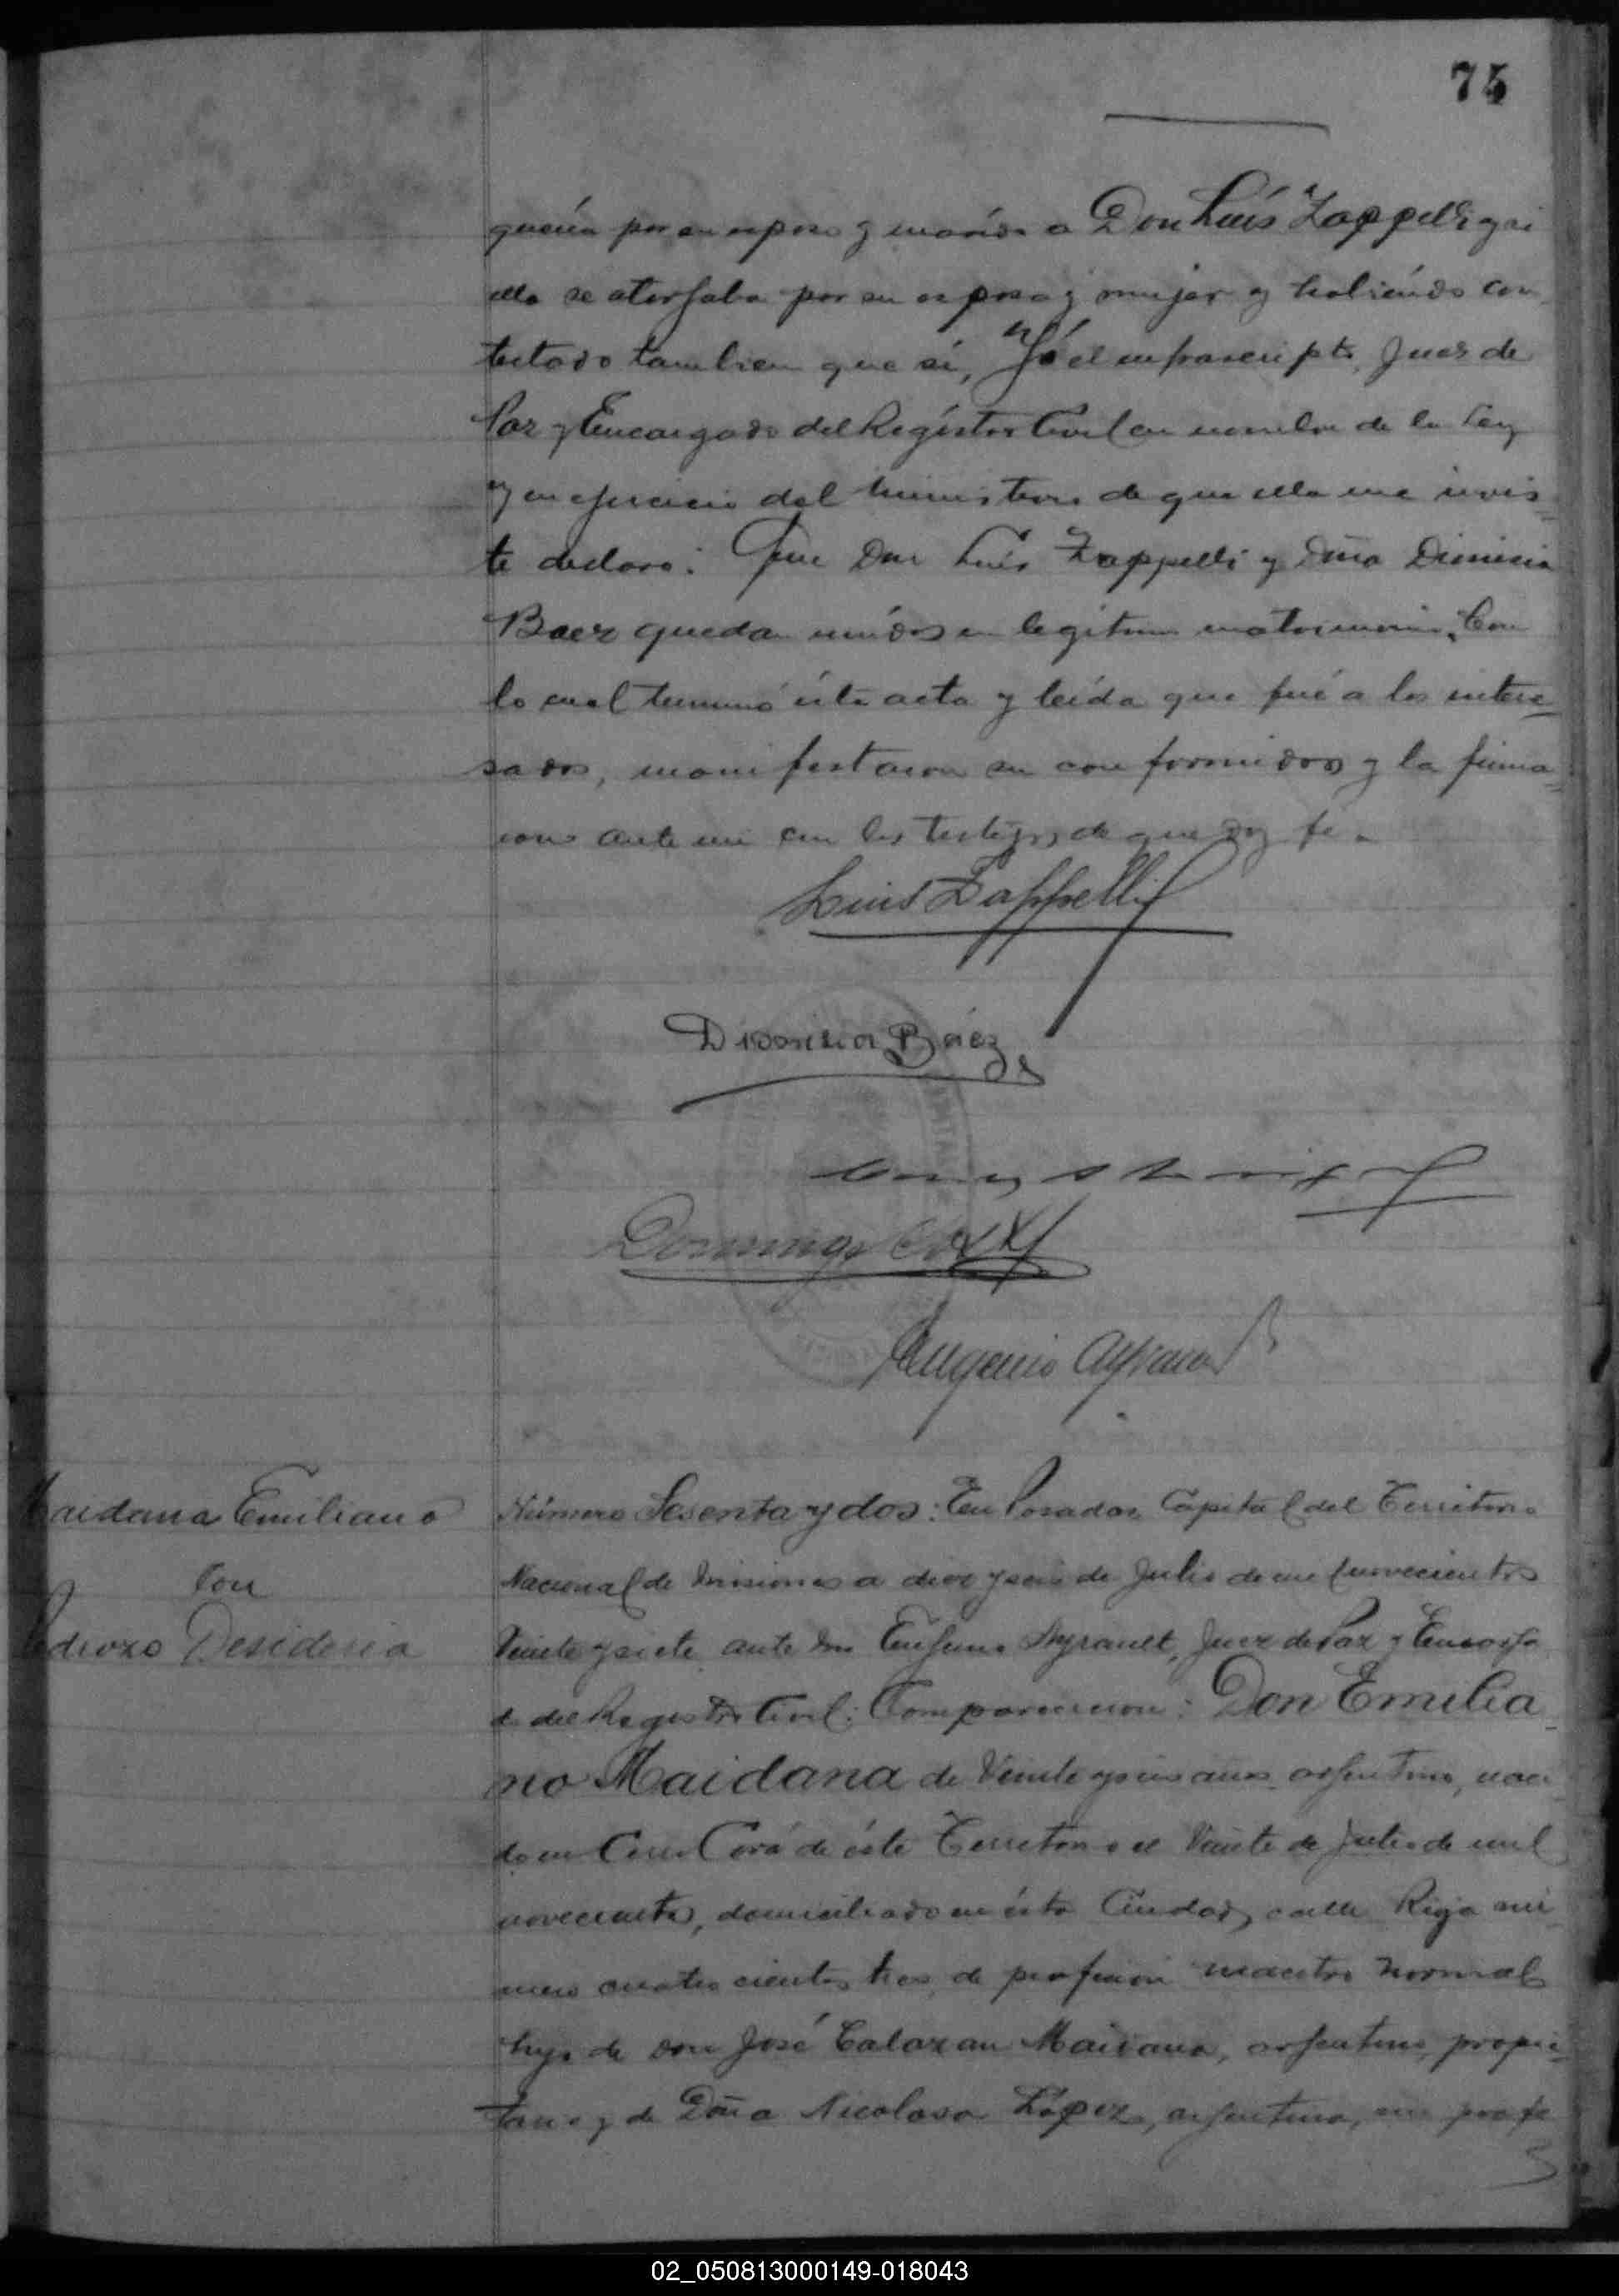 75
quería por su esposo y marido a Don Luís Zappelli y si
ella se otorgaba por su esposa y mujer y habiéndo con
testado tambien que sí, Yó el infrascripto Juez de
Paz y Encargado del Registro Civil en nombre de la Ley
y en ejercicio del ministerio de que ella me invis
te declaro: Que Don Luis Zappelli y Dña Dionisia
Baez quedan unidos en legítimo matrimonio. Con
lo cual terminó ésta acta y leída que fué a los intere
sados, manifestaron su conformidad y la firma
ron ante mi con los testigos, de que doy fe.
Luis Zappelli
Dionisia Báez
Domingo
Eugenio Ayrault
Maidana Emiliano
con
Pedrozo Desideria
Número Sesenta y dos: En Posadas Capital del Territorio
Nacional de Misiones a diez y seis de Julio de mil novecientos
Veinte y siete ante Don Eugenio Ayrault, Juez de Paz y Encarga
do del Registro Civil: Comparecieron: Don Emilia
no Maidana de Veinte y seis años argentino, naci
do en Cerro Corá de éste Territorio el Veinte de Julio de mil
novecientos, domiciliado en ésta Ciudad, calle Rioja nú
mero cuatrocientos tres, de profesión maestro normal
hijo de Don José Calazan Maidana, argentino, propie
tario y de Doña Nicolasa López, argentina, sin profe
02_050813000149-018043